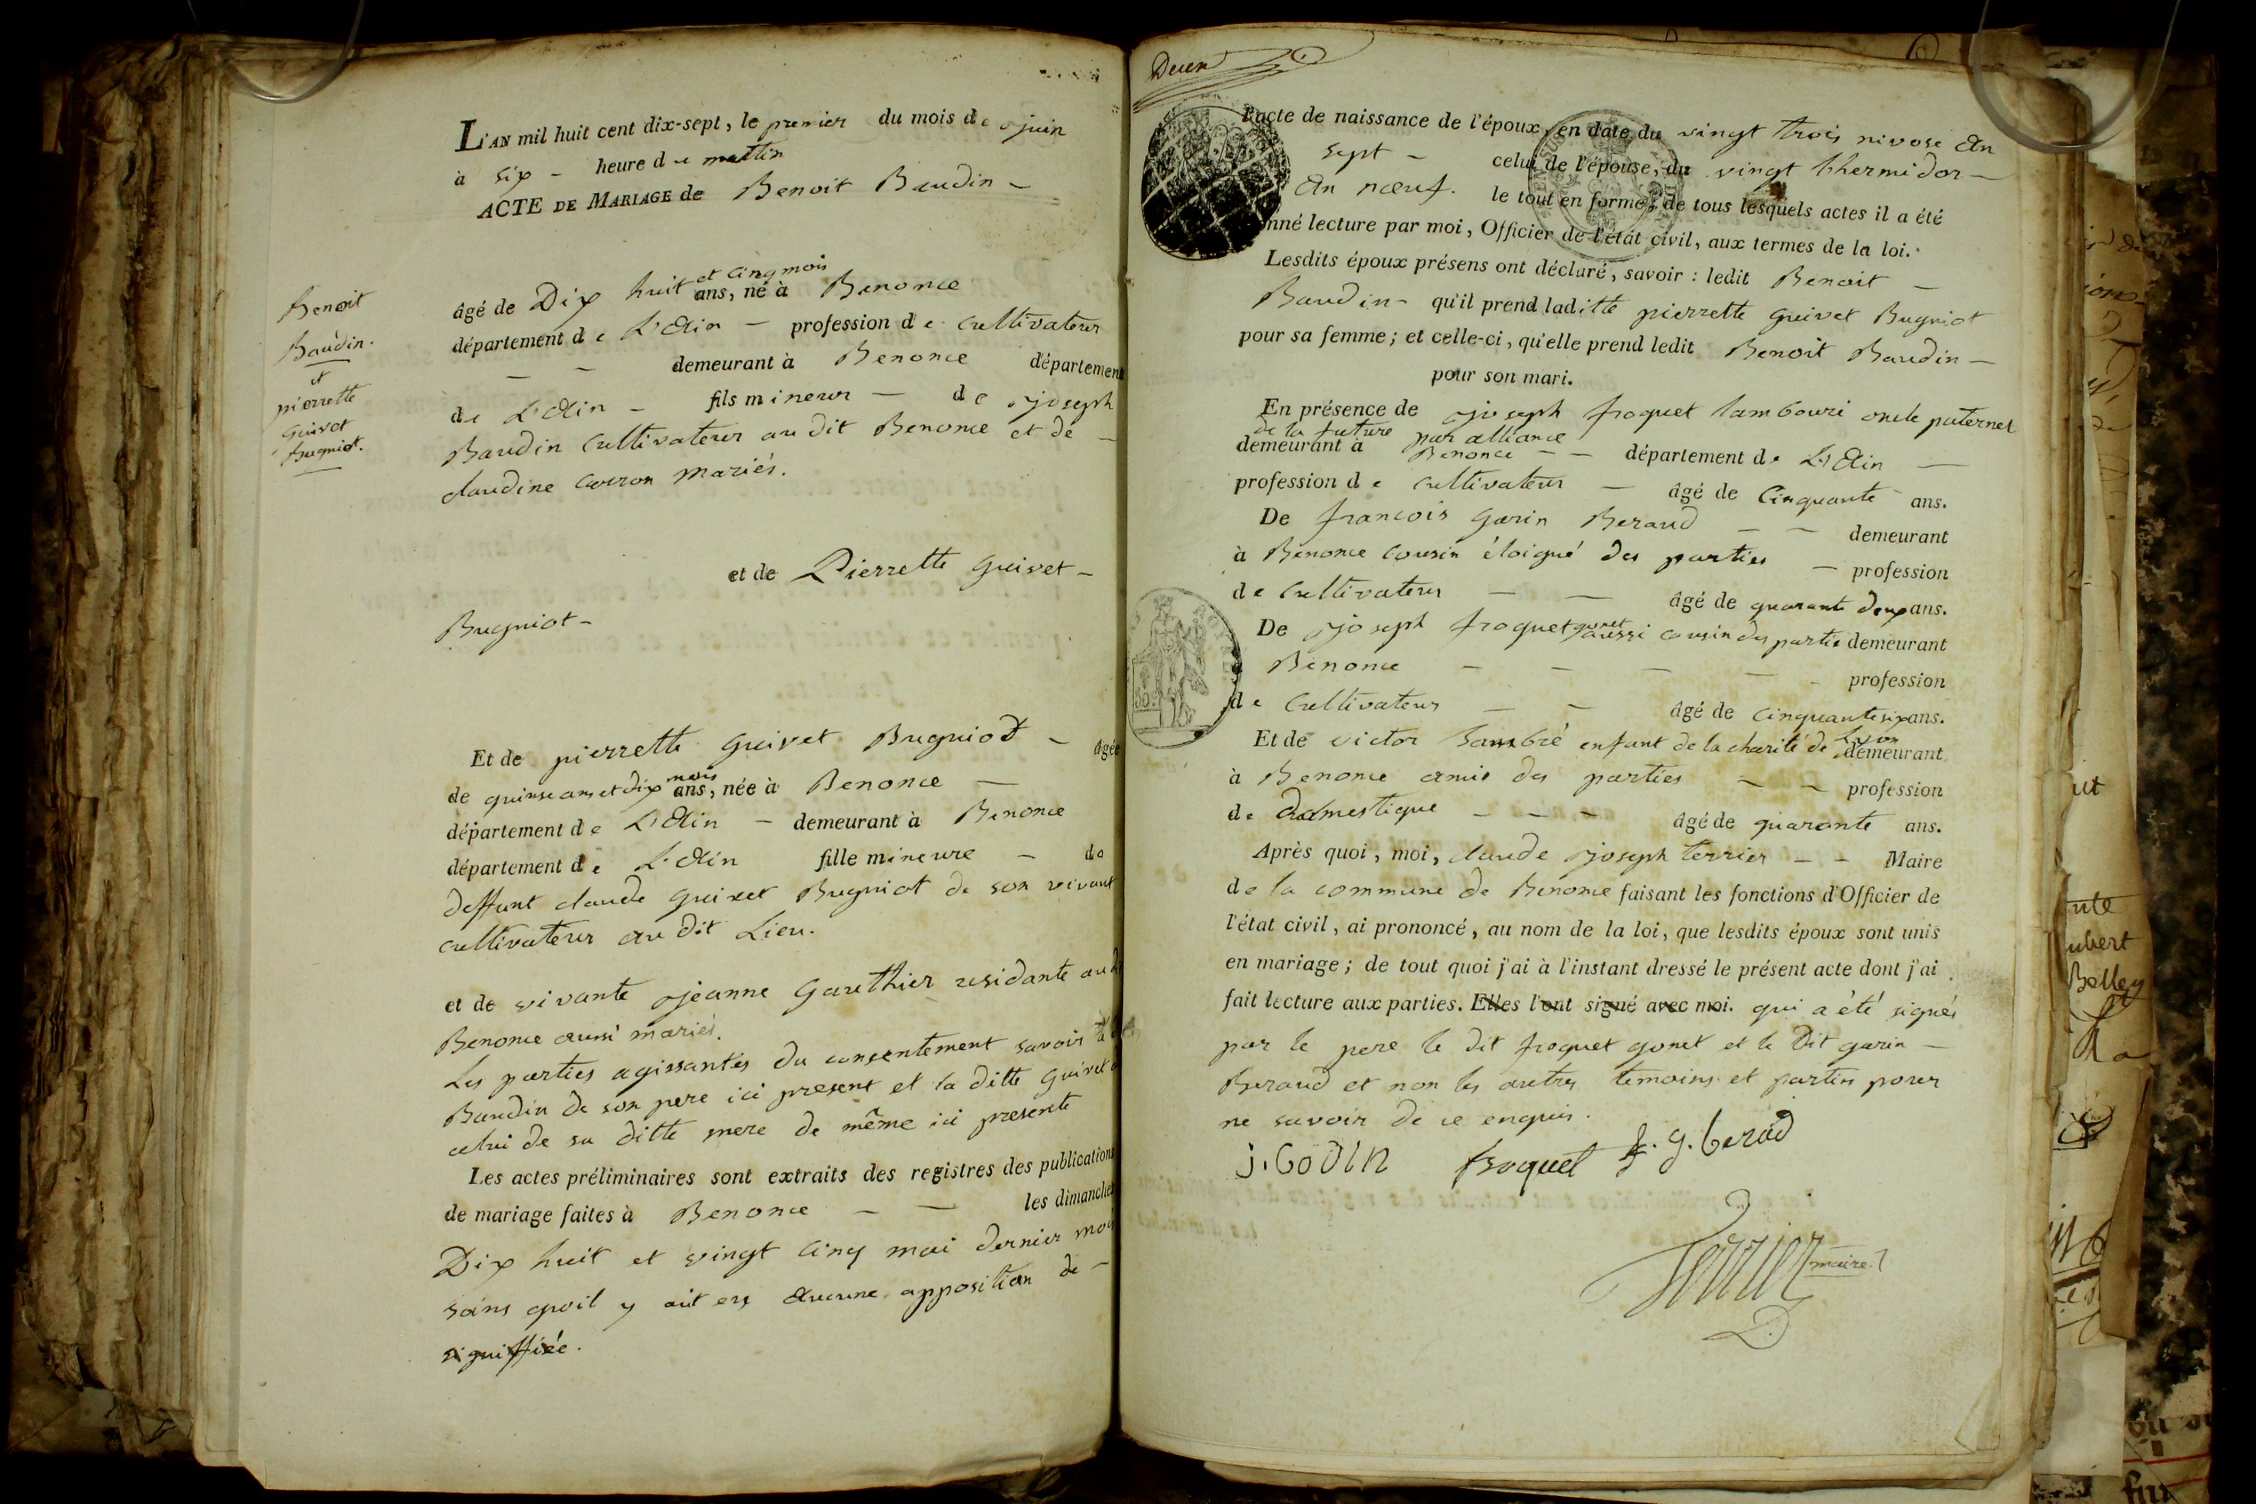 L'AN mil huit cent dix-sept, le premier du mois de juin
à six - heure du mattin
ACTE DE MARIAGE de Benoit Baudin -
Benoit
Baudin.
et
pierrette
Guivet
Bugniot.
et cinq mois
âgé de Dix huit ans, né à Benonce
département de L'Ain - profession de cultivateur
- - demeurant à Benonce département
de L'Ain - fils mineur - de joseph
Baudin cultivateur au dit Benonce et de -
claudine carron mariés.
et de Pierrette Guivet -
Bugniot -
Et de pierrette Guivet Bugniot - âgée
mois
de quinse ans et dix ans, née à Benonce -
département de L'Ain - demeurant à Benonce
département de L'Ain fille mineure - de
deffunt claude Guivet Bugniot de son vivant
cultivateur au dit Lieu.
et de vivante jeanne Gauthier residante au dit
Benonce aussi mariés.
Les parties agissantes du consentement savoir le
Baudin de son pere ici present et la ditte Guivet
celui de sa ditte mere de même ici presente
Les actes préliminaires sont extraits des registres des publications
de mariage faites à Benonce - - les dimanches
Dix huit et vingt cinq mai dernier moi
sans qu'oil y ait eu aucune apposition de -
signiffiée.
l'acte de naissance de l'époux, en date du vingt trois nivose An
sept - celui de l'épouse, du vingt thermidor -
An nœuf. le tout en forme; de tous lesquels actes il a été
nné lecture par moi, Officier de l'état civil, aux termes de la loi.
Lesdits époux présens ont déclaré, savoir : ledit Benoit -
Baudin - qu'il prend laditte pierrette Guivet Bugniot
pour sa femme; et celle-ci, qu'elle prend ledit Benoit Baudin -
pour son mari.
En présence de joseph froquet tambouri oncle paternel
de la future par alliance
demeurant à Benonce - - département de L'Ain -
profession de cultivateur - âgé de Cinquante ans.
De francois Garin Beraud - - demeurant
à Benonce cousin éloigné des parties - profession
de cultivateur - - âgé de quarante deux ans.
De joseph froquet gonet aussi cousin des partie demeurant
à Benonce - - - - - profession
de cultivateur - - âgé de cinquante six ans.
Et de victor enfant de la charité de Lyon demeurant
à Benonce amis des parties - - profession
de domestique - - - âgé de quarante ans.
Après quoi, moi, claude joseph terrier - - Maire
de la commune de Benonce faisant les fonctions d'Officier de
l'état civil, ai prononcé, au nom de la loi, que lesdits époux sont unis
en mariage; de tout quoi j'ai à l'instant dressé le présent acte dont j'ai
fait lecture aux parties. Elles l'ont signé avec moi. qui a été signés
par le pere le dit froquet gonet et le Dit garin -
Beraud et non les autres temoins et parties pour
ne savoir de ce enquis.
J. GODIN froquet f. g. berod
Terrier maire